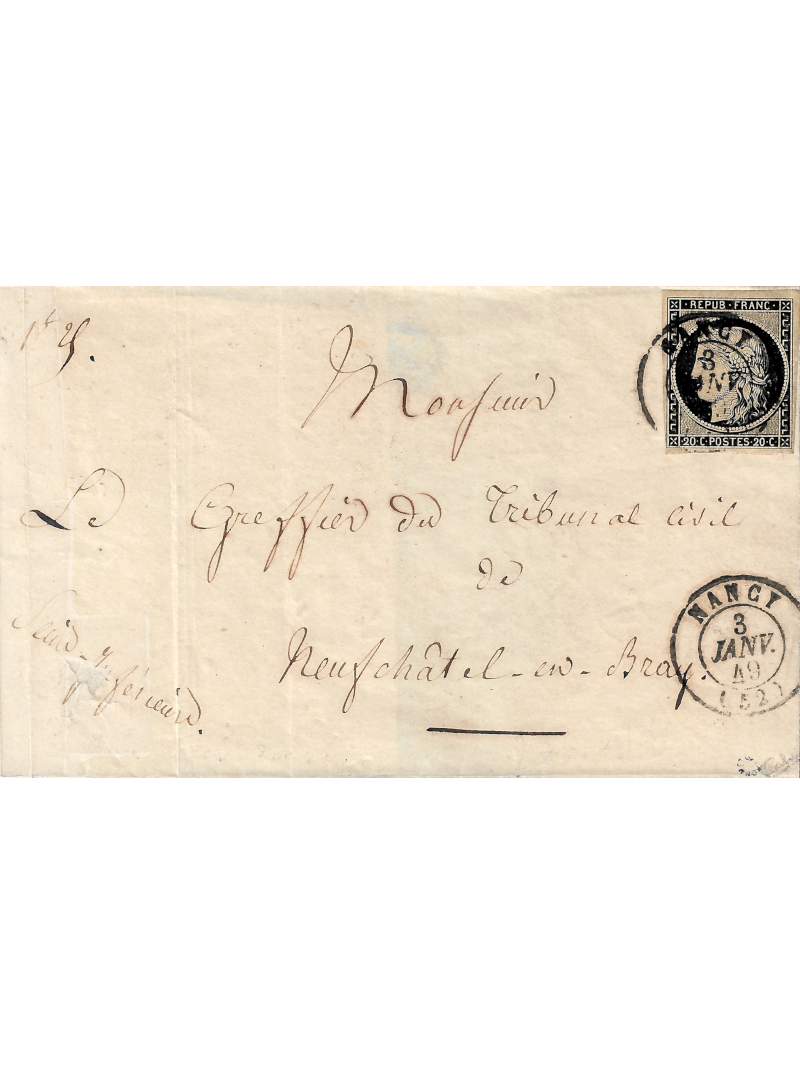 REPUB · FRANC ·
NANCY
3
JANV.
20 · C · POSTES · 20 · C
Monsieur
Le Greffier du Tribunal civil
de
Neufchâtel-en-Bray.
Seine-Inférieure.
NANCY
3
JANV.
49
(52)